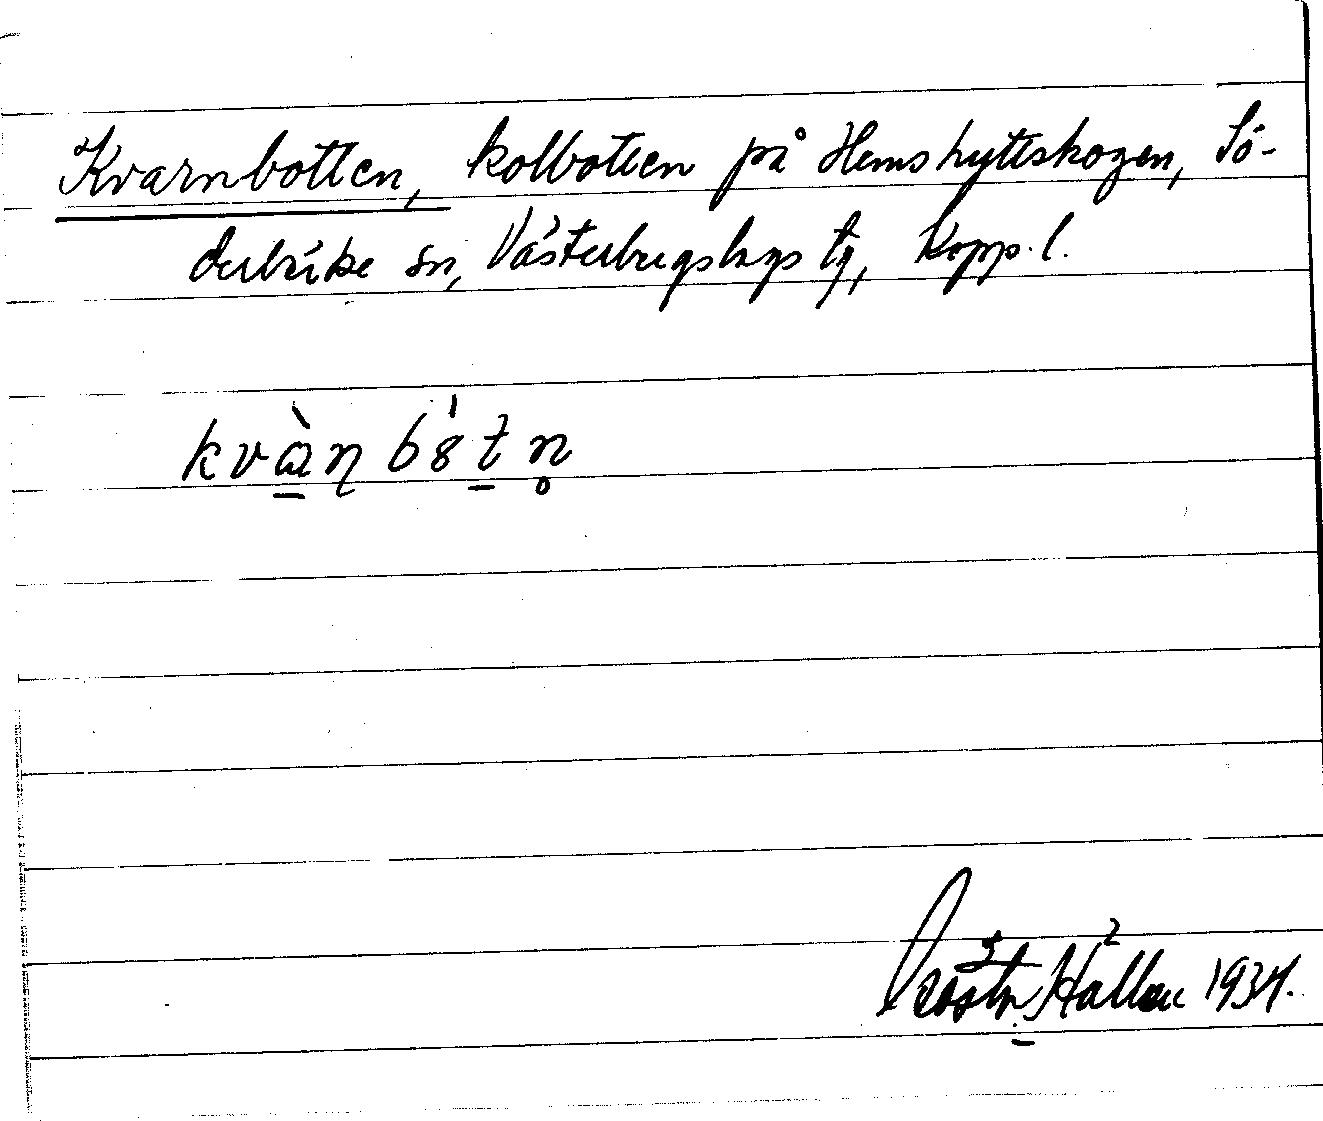 Kvarnbotten, kolbotten på Hemshyttskogen, Sö-
derbärke sn, Västerbergslags tg, Kopp. l.
kvàn bót n
Hallén 1934.